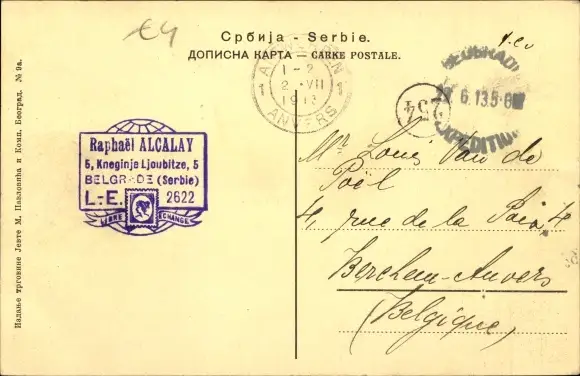 €4
Србија - Serbie.
ДОПИСНА КАРТА — CARKE POSTALE.
1-2
2 · VII
1913
ANVERS
1
1
BEOGRAD
6.13 5-8
EXPEDITION
234
Raphaël ALCALAY
5, Kneginje Ljoubitze, 5
BELGRADE (Serbie)
L.-E. 2622
LIBRE ECHANGE
Mr Louis Van de
Poël
4, rue de la Paix 4
Berchem-Anvers
(Belgique)
Издање трговине Јевте М. Павловића и Комп. Београд. № 9а.